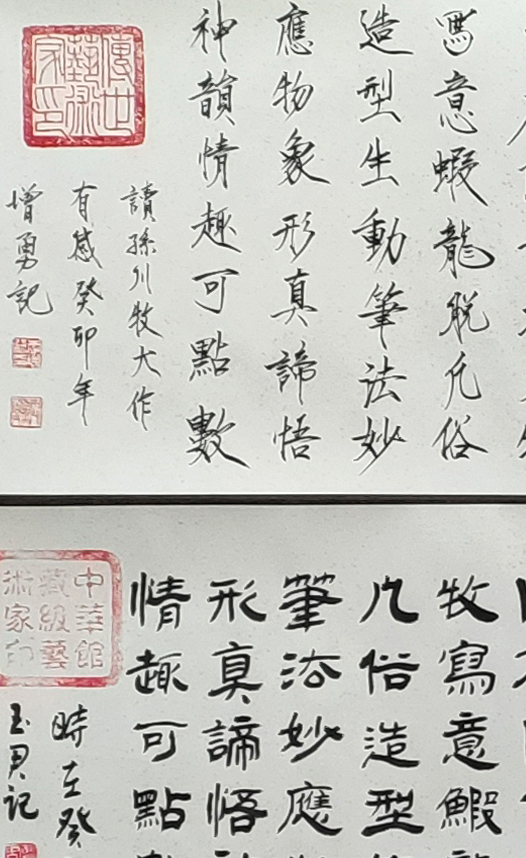 寫意蝦龍脫凡俗
造型生動筆法妙
應物象形真諦悟
神韻情趣可點數
讀孫川牧大作
有感癸卯年
增勇記
傳世藝術家印
牧寫意鰕
凡俗造型
筆法妙應
形真諦悟
情趣可點
中華館藏級藝術家印
時在癸
玉貝記